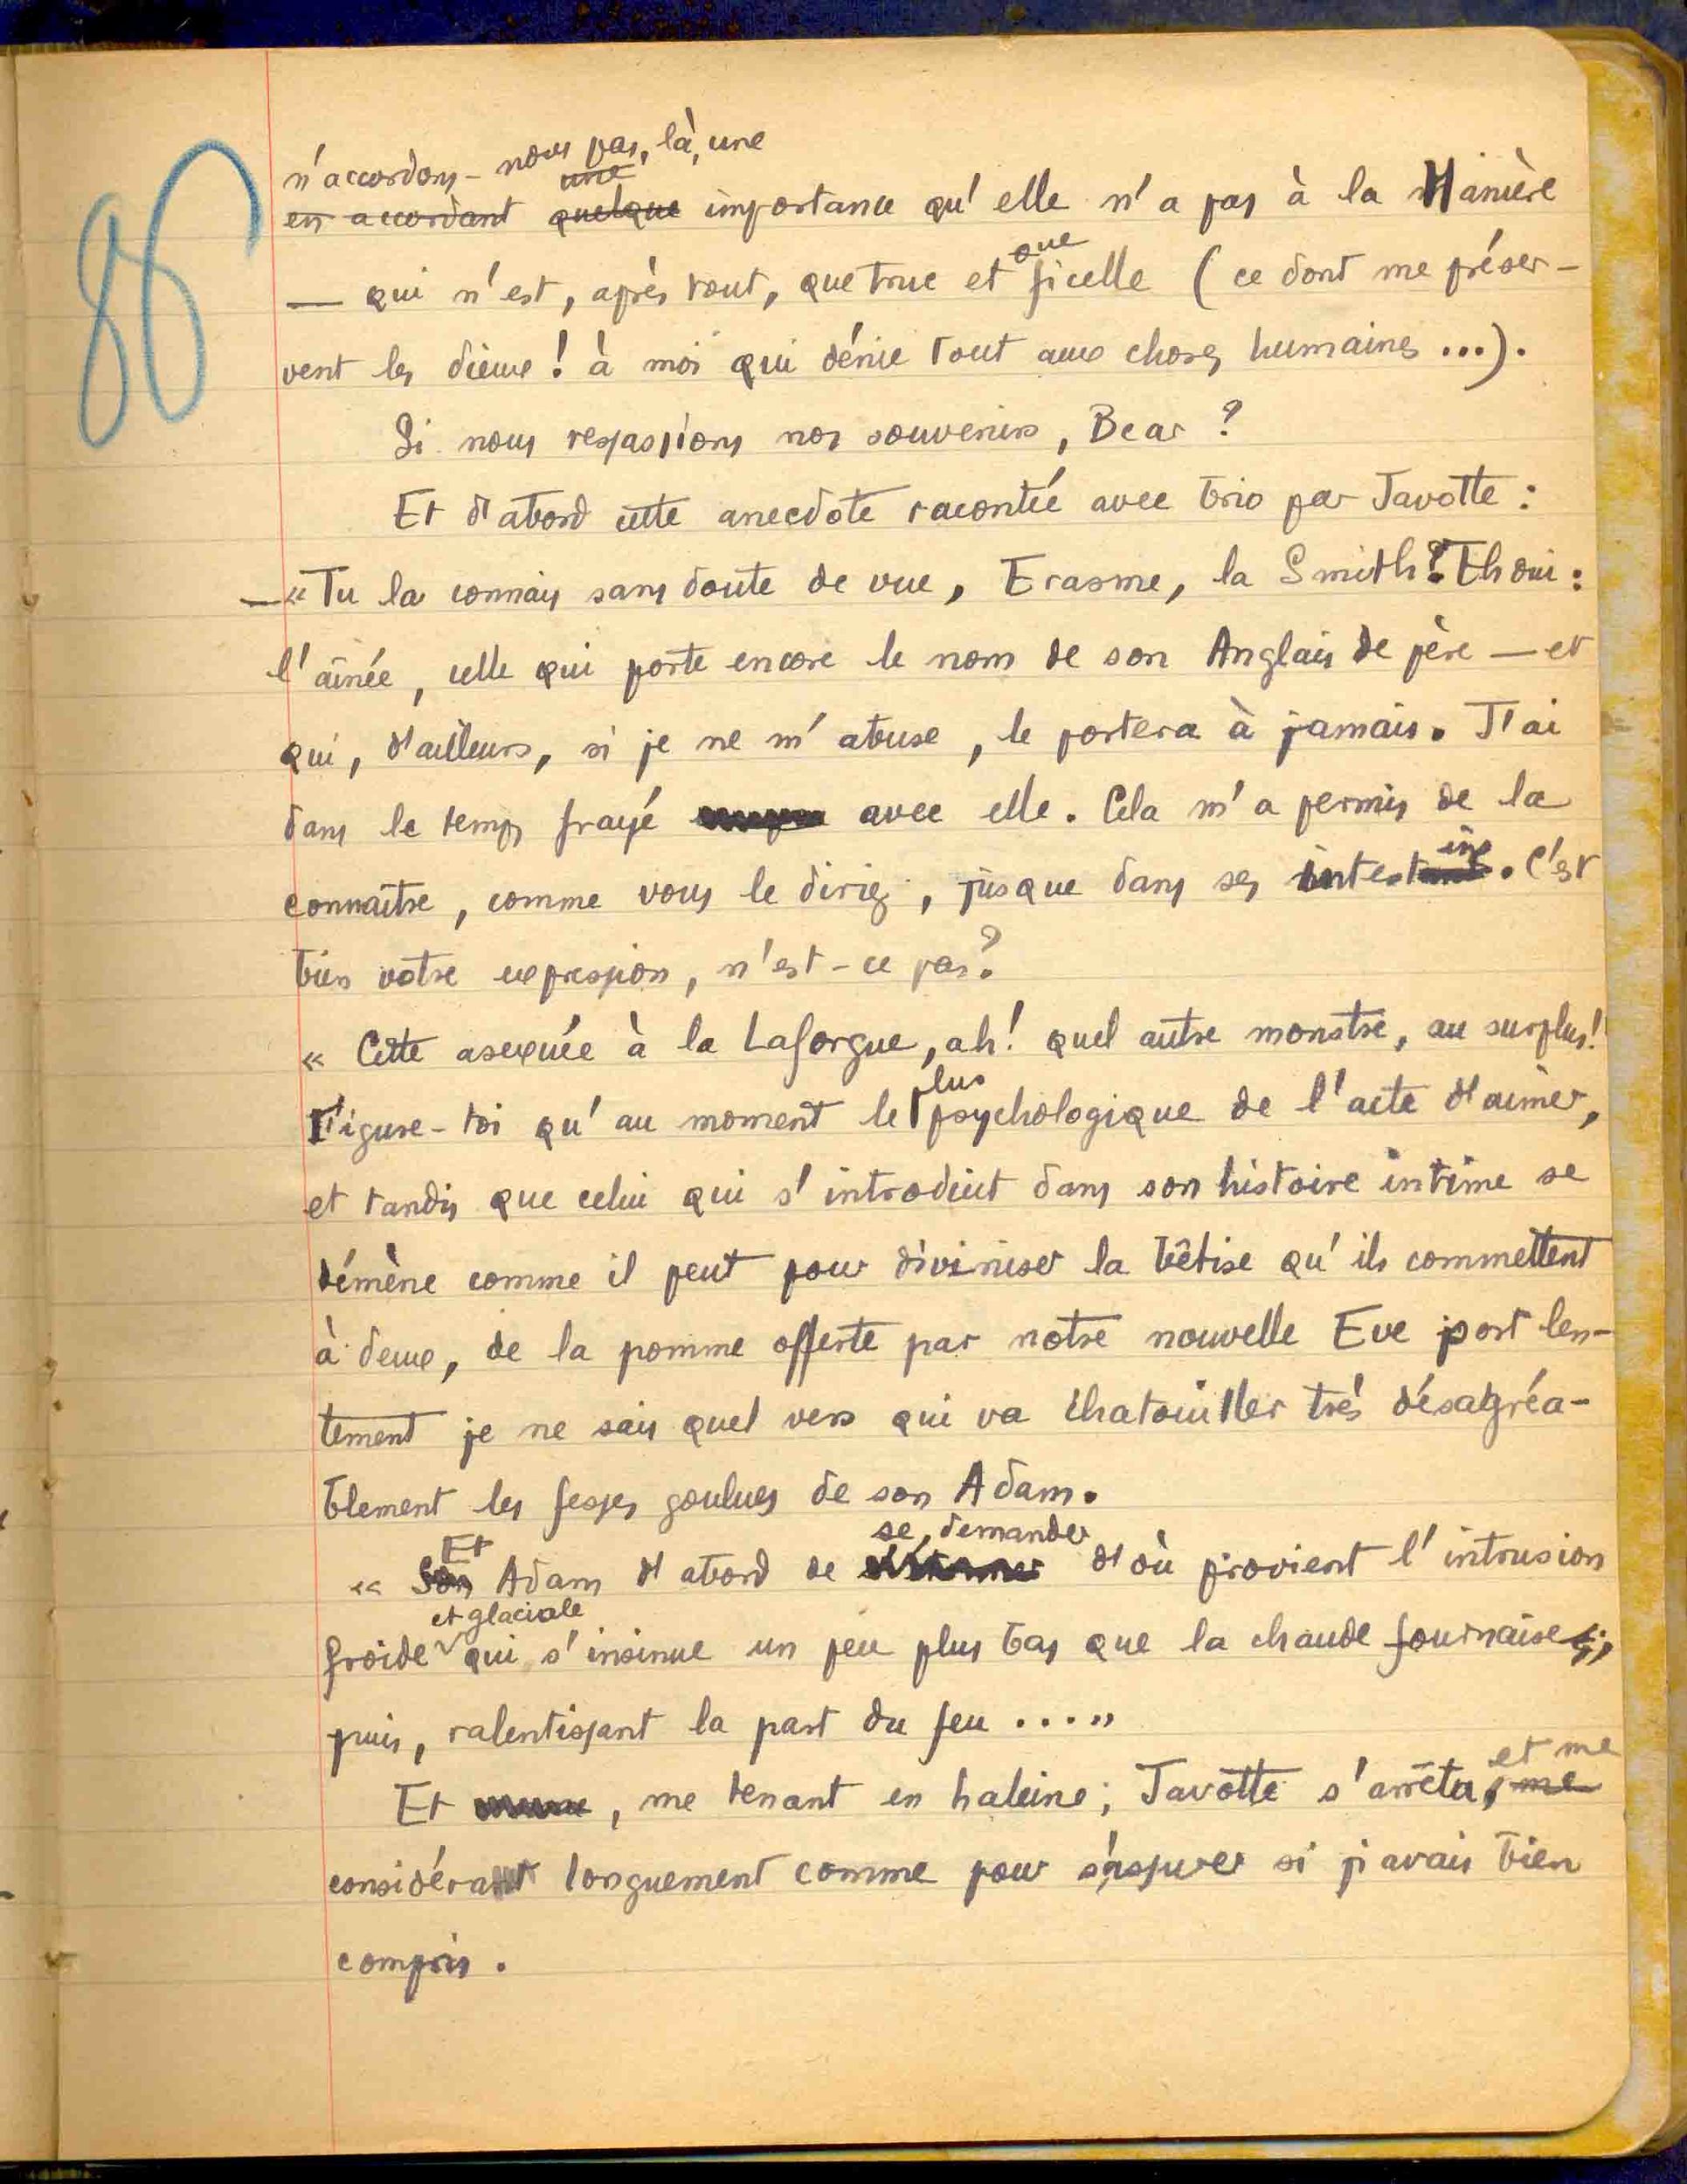 86
n'accordons-nous pas, là, une
une
en accordant quelque importance qu'elle n'a pas à la Manière
que
— qui n'est, après tout, que truc et ficelle (ce dont me préser-
vent les dieux ! à moi qui dénie tout aux choses humaines ...).
Si nous repassions nos souvenirs, Bear ?
Et d'abord cette anecdote racontée avec brio par Javotte :
— « Tu la connais sans doute de vue, Erasme, la Smith ? Eh oui :
l'aînée, celle qui porte encore le nom de son Anglais de père — et
qui, d'ailleurs, si je ne m'abuse, le portera à jamais. J'ai
dans le temps frayé avec elle. Cela m'a permis de la
ins
connaître, comme vous le diriez, jusque dans ses intest. C'est
bien votre expression, n'est-ce pas ?
« Cette asexuée à la Laforgue, ah ! quel autre monstre, au surplus !
plus
Figure-toi qu'au moment le psychologique de l'acte d'aimer,
et tandis que celui qui s'introduit dans son histoire intime se
démène comme il peut pour diviniser la bêtise qu'ils commettent
à deux, de la pomme offerte par notre nouvelle Eve sort len-
tement je ne sais quel vers qui va chatouiller très désagréa-
blement les fesses goulues de son Adam.
Et se demander
« Son Adam d'abord de d'où provient l'intrusion
et glaciale
froide qui s'insinue un peu plus bas que la chaude fournaise ;
puis, ralentissant la part du feu .... »
et me
Et , me tenant en haleine, Javotte s'arrêta, me
considérant longuement comme pour s'assurer si j'avais bien
compris.